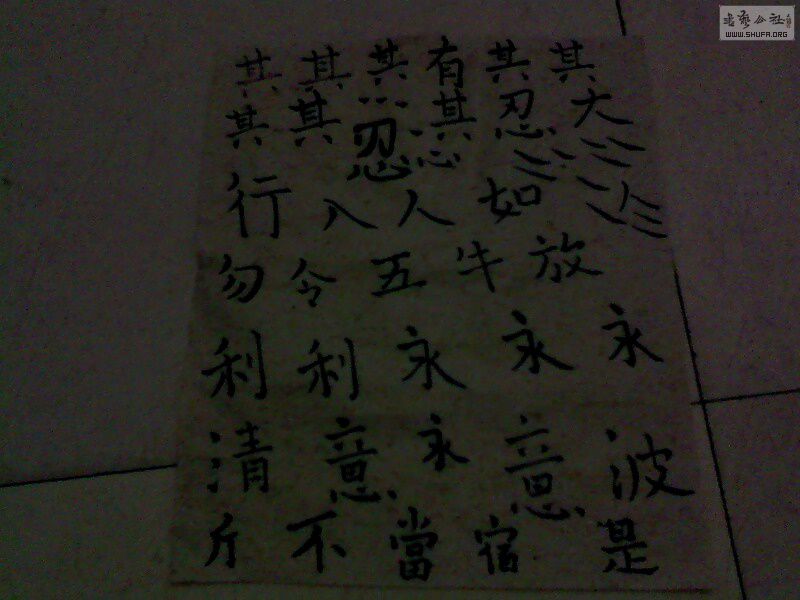 书艺公社
WWW.SHUFA.ORG
其其其有其其
其其忍其忍大
行入人如人
勿令五牛放
利利永永永
清意永意波
斤不當宿是